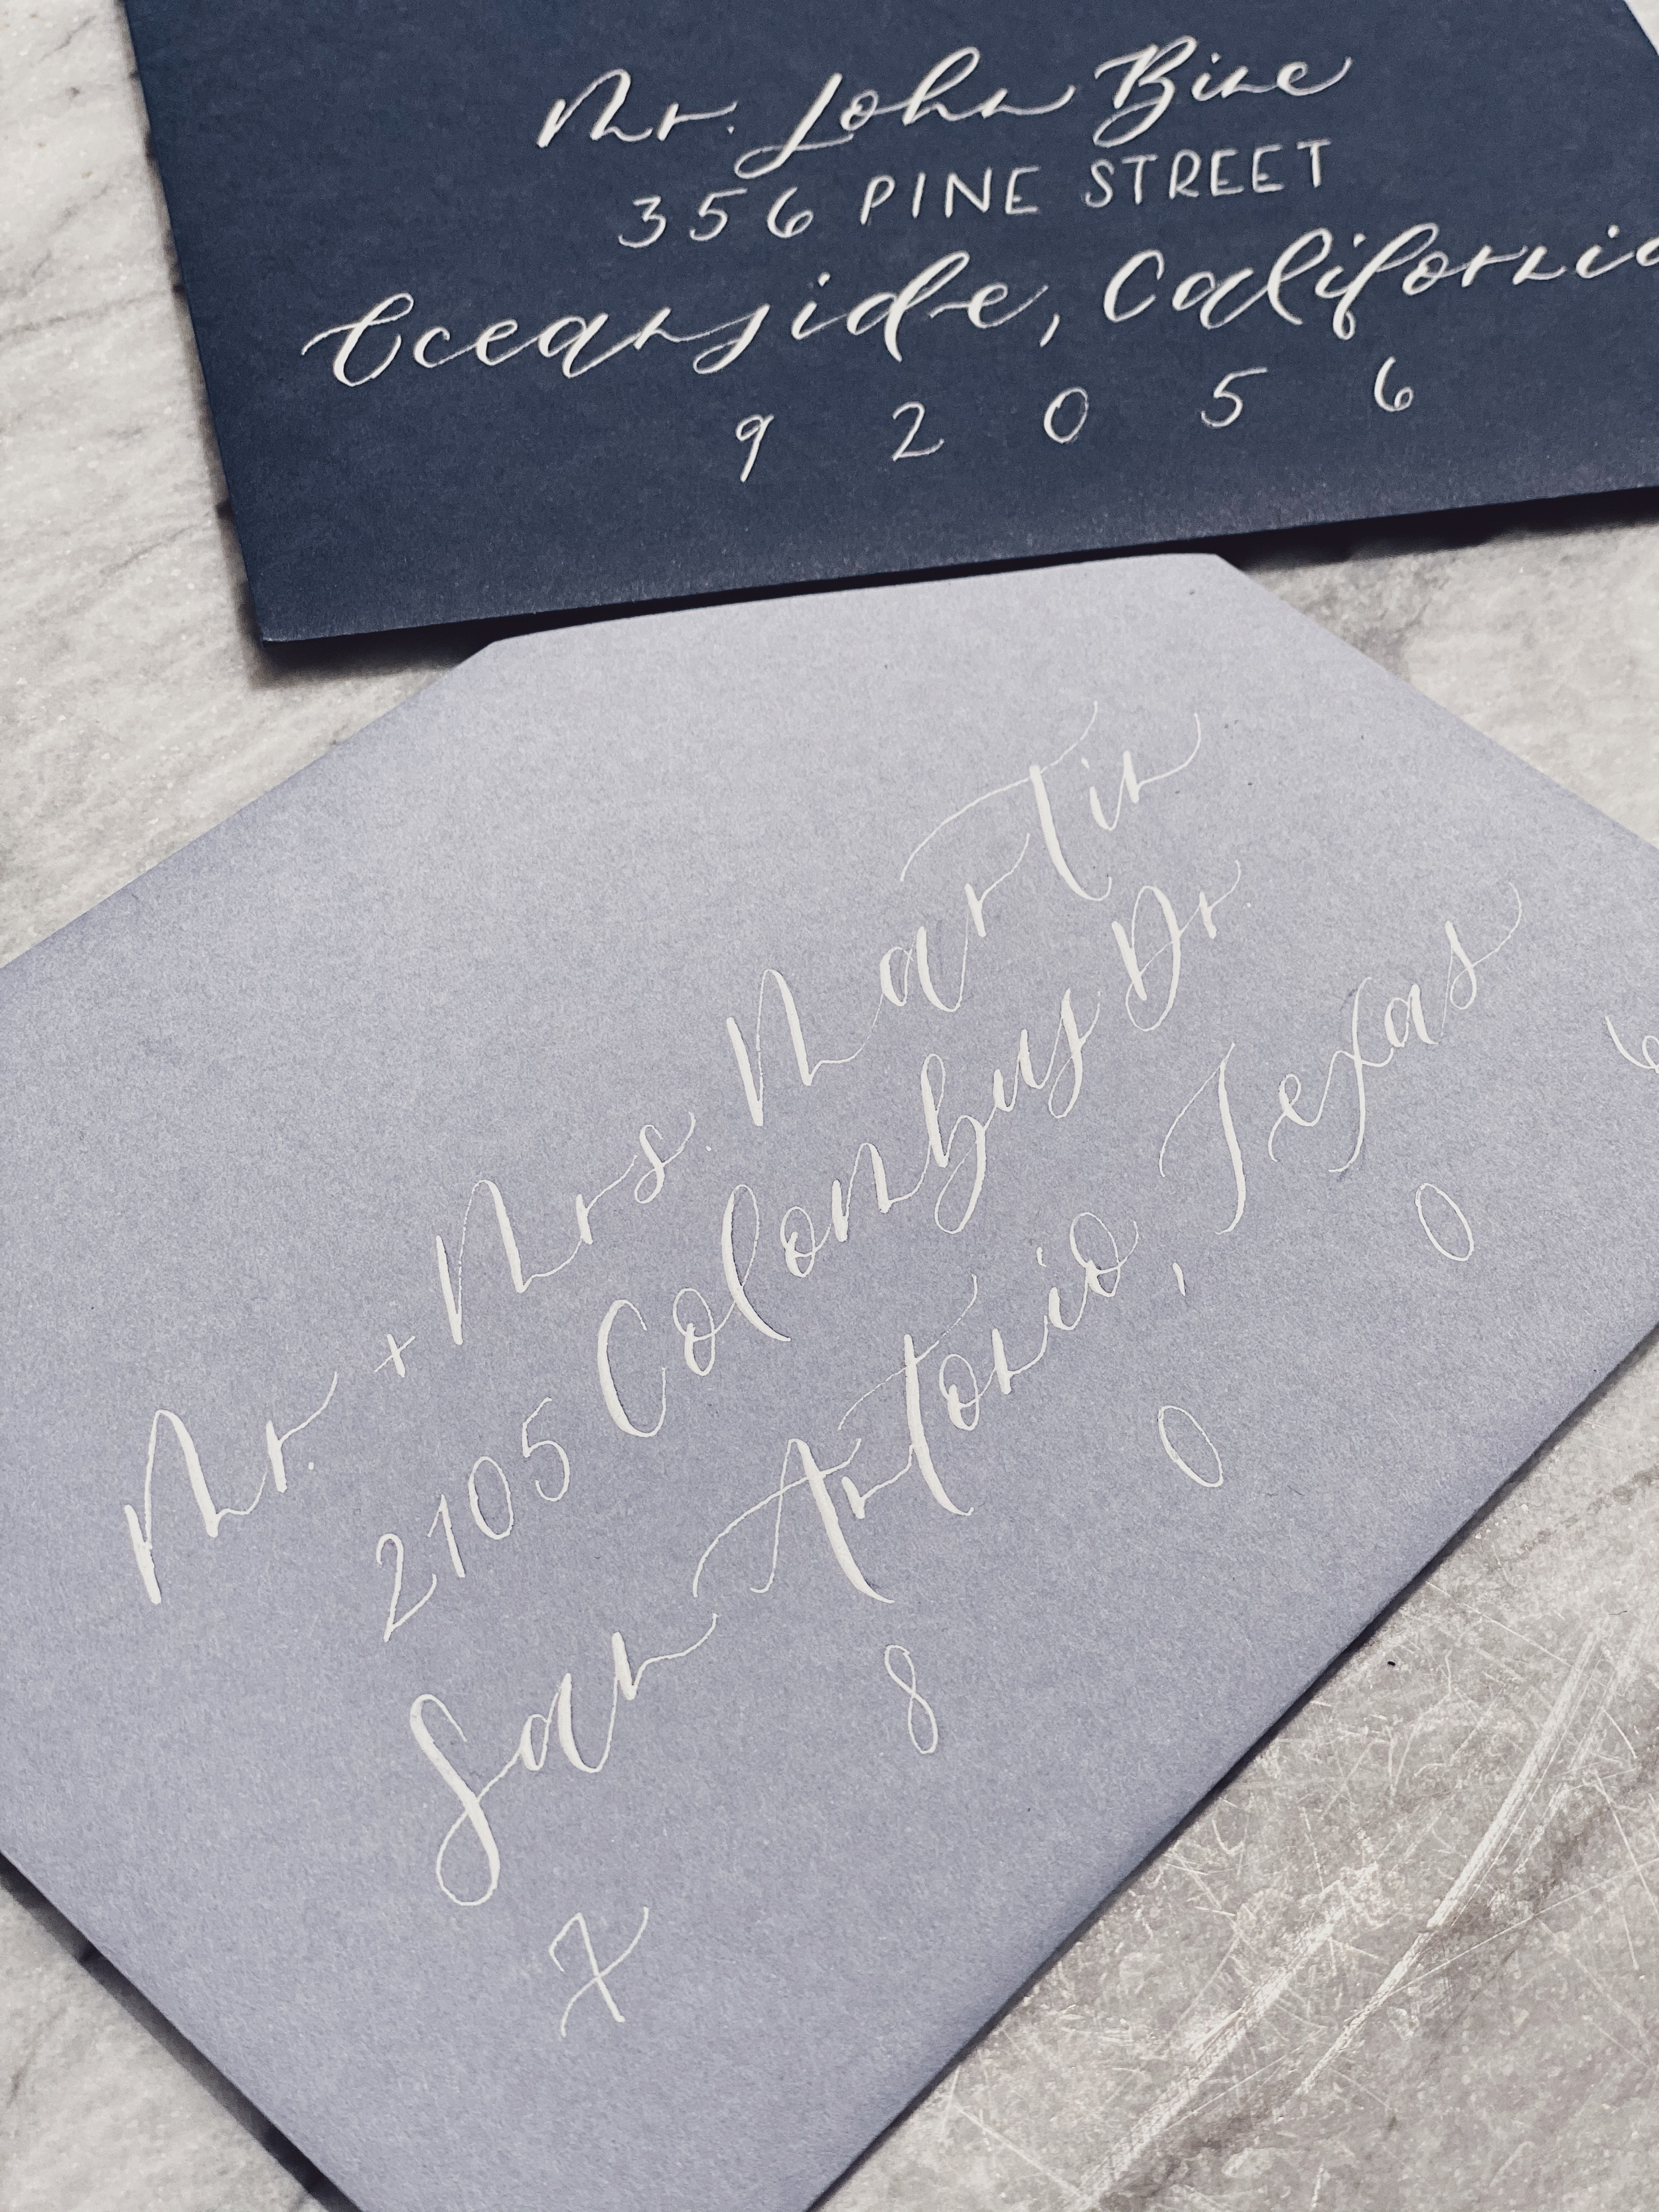 Mr. John Bine
356 PINE STREET
Oceanside, California
92056
Mr. + Mrs. Martin
2105 Colombus Dr.
San Antonio, Texas
78006